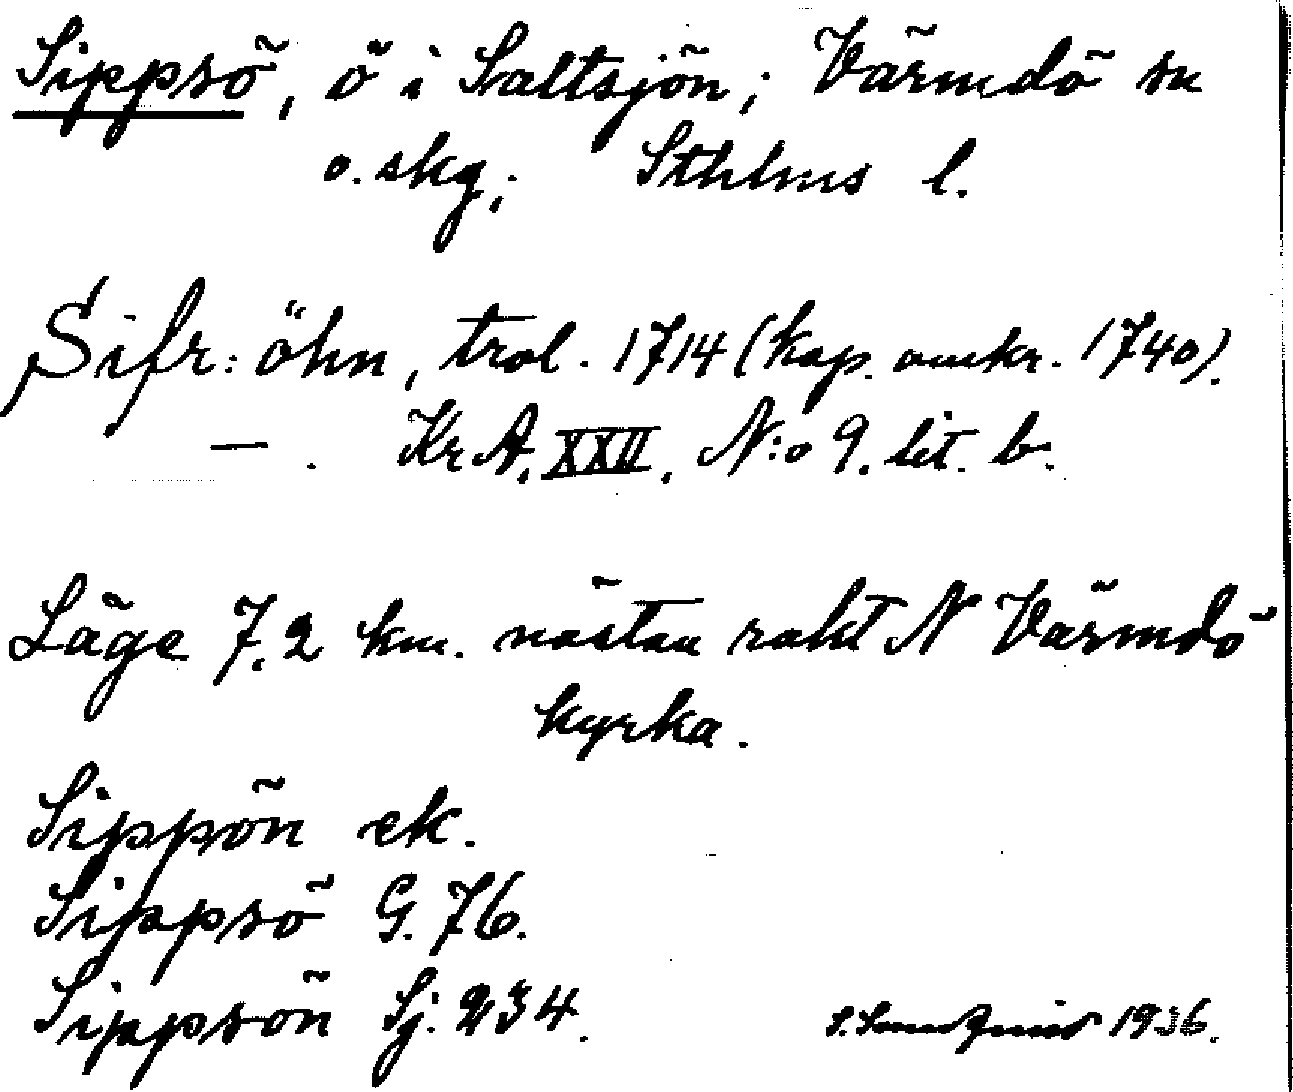 Sippsö, ö i Saltsjön; Värmdö sn
o. skg; Sthlms l.
Sifr: öhn, trol. 1714 (kop. omkr. 1740).
— . KrA. XXII. N:o 9. lit. b.
Läge 7.2 km. nästan rakt N Värmdö
kyrka.
Sippön ek.
Sippsö G. 76.
Sippsön Sj. 234.
1936.